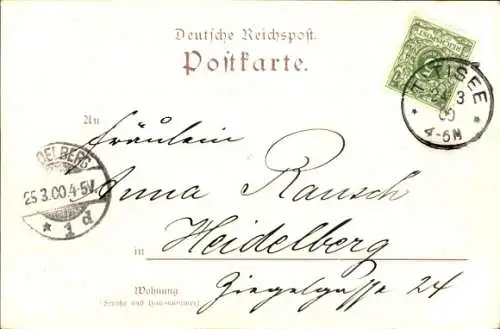 Deutsche Reichspost.
Postkarte.
TITISEE
3
00
4-5N
An
Fräulein
DELBERG
25.3.00.4-5V.
* 1 d
Anna Rausch
in Heidelberg
Wohnung
(Straße und Hausnummer)
Ziegelgasse 24